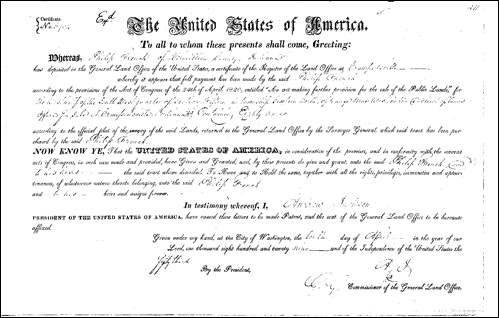 Certificate
The United States of America,
To all to whom these presents shall come, Greeting:
Whereas, Philip French of Hamilton County, Indiana
has deposited in the General Land Office of the United States, a certificate of the Register of the Land Office at Crawfordsville
whereby it appears that full payment has been made by the said Philip French
according to the provisions of the Act of Congress of the 24th of April, 1820, entitled "An act making further provision for the sale of the Public Lands," for
containing Eighty acres
according to the official plat of the survey of the said Lands, returned to the General Land Office by the Surveyor General, which said tract has been pur-
chased by the said Philip French
NOW KNOW YE, That the UNITED STATES OF AMERICA, in consideration of the premises, and in conformity with the several
acts of Congress, in such case made and provided, have Given and Granted, and, by these presents do give and grant, unto the said Philip French and
to his heirs the said tract above described: To Have and to Hold the same, together with all the rights, privileges, immunities and appur-
tenances, of whatsoever nature thereto belonging, unto the said Philip French
and to his heirs and assigns forever.
In testimony whereof, I, Andrew Jackson
PRESIDENT OF THE UNITED STATES OF AMERICA, have caused these letters to be made Patent, and the seal of the General Land Office to be hereunto
affixed.
Given under my hand, at the City of Washington, the day of April in the year of our
Lord, one thousand eight hundred and twenty nine and of the Independence of the United States the
fifty third
By the President,
A. J.
Commissioner of the General Land Office.